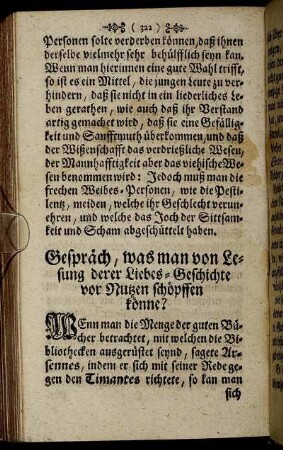 ( 322 )
Personen solte verderben können, daß ihnen
derselbe vielmehr sehr behülfflich seyn kan.
Wenn man hierinnen eine gute Wahl trifft,
so ist es ein Mittel, die jungen Leute zu ver-
hindern, daß sie nicht in ein liederliches Le-
ben gerathen, wie auch daß ihr Verstand
artig gemachet wird, daß sie eine Gefällig-
keit und Sanfftmuth überkommen, und daß
der Wißenschafft das verdrießliche Wesen,
der Mannhafftigkeit aber das viehische We-
sen benommen wird: Jedoch muß man die
frechen Weibes-Personen, wie die Pesti-
lentz, meiden, welche ihr Geschlecht verun-
ehren, und welche das Joch der Sittsam-
keit und Scham abgeschüttelt haben.
Gespräch, was man von Le-
sung derer Liebes-Geschichte
vor Nutzen schöpffen
könne?
WEnn man die Menge der guten Bü-
cher betrachtet, mit welchen die Bi-
bliothecken ausgerüstet seynd, sagete Ar-
sennes, indem er sich mit seiner Rede ge-
gen den Timantes richtete, so kan man
sich